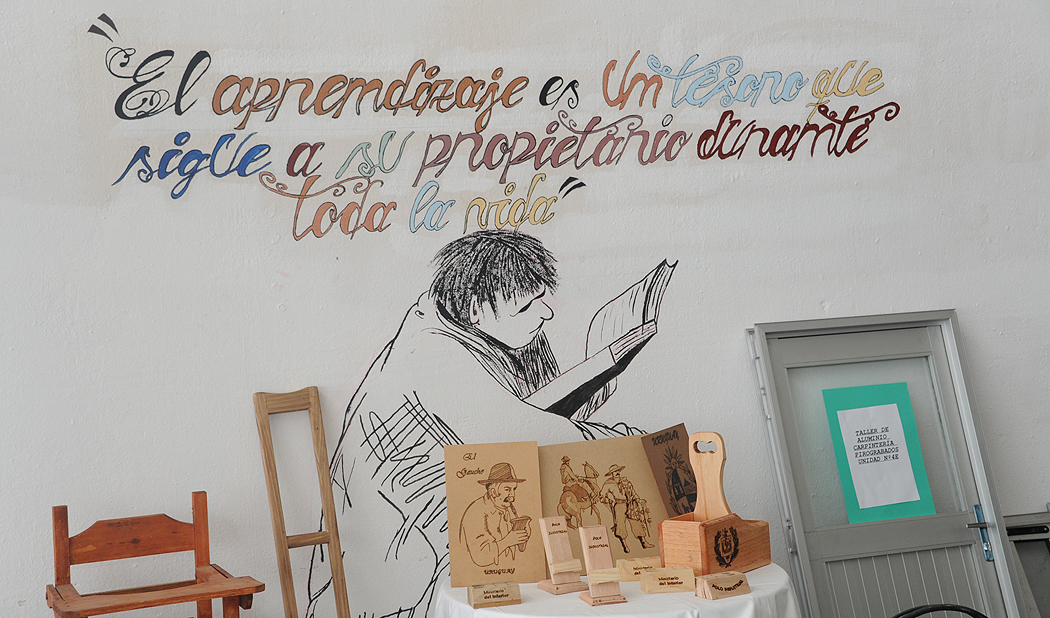 "El aprendizaje es un tesoro que
sigue a su propietario durante
toda la vida"
TALLER DE
ALUMINIO
CARPINTERÍA
PIROGRABADOS
UNIDAD Nº4E
El
Gaucho
URUGUAY
URUGUAY
POLO
INDUSTRIAL
POLO
INDUSTRIAL
Ministerio
del Interior
Ministerio
del
Ministerio
del Interior
POLO INDUSTRIAL